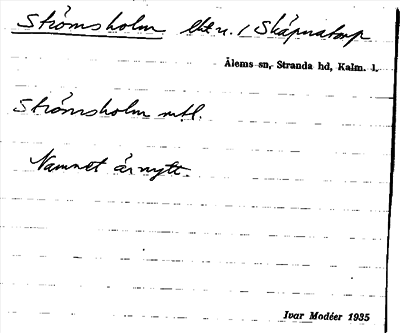 Strömsholm lht u. / Skäpnatorp
Ålems sn, Stranda hd, Kalm. l.
Strömsholm mtl.
Namnet är nytt.
Ivar Modéer 1935